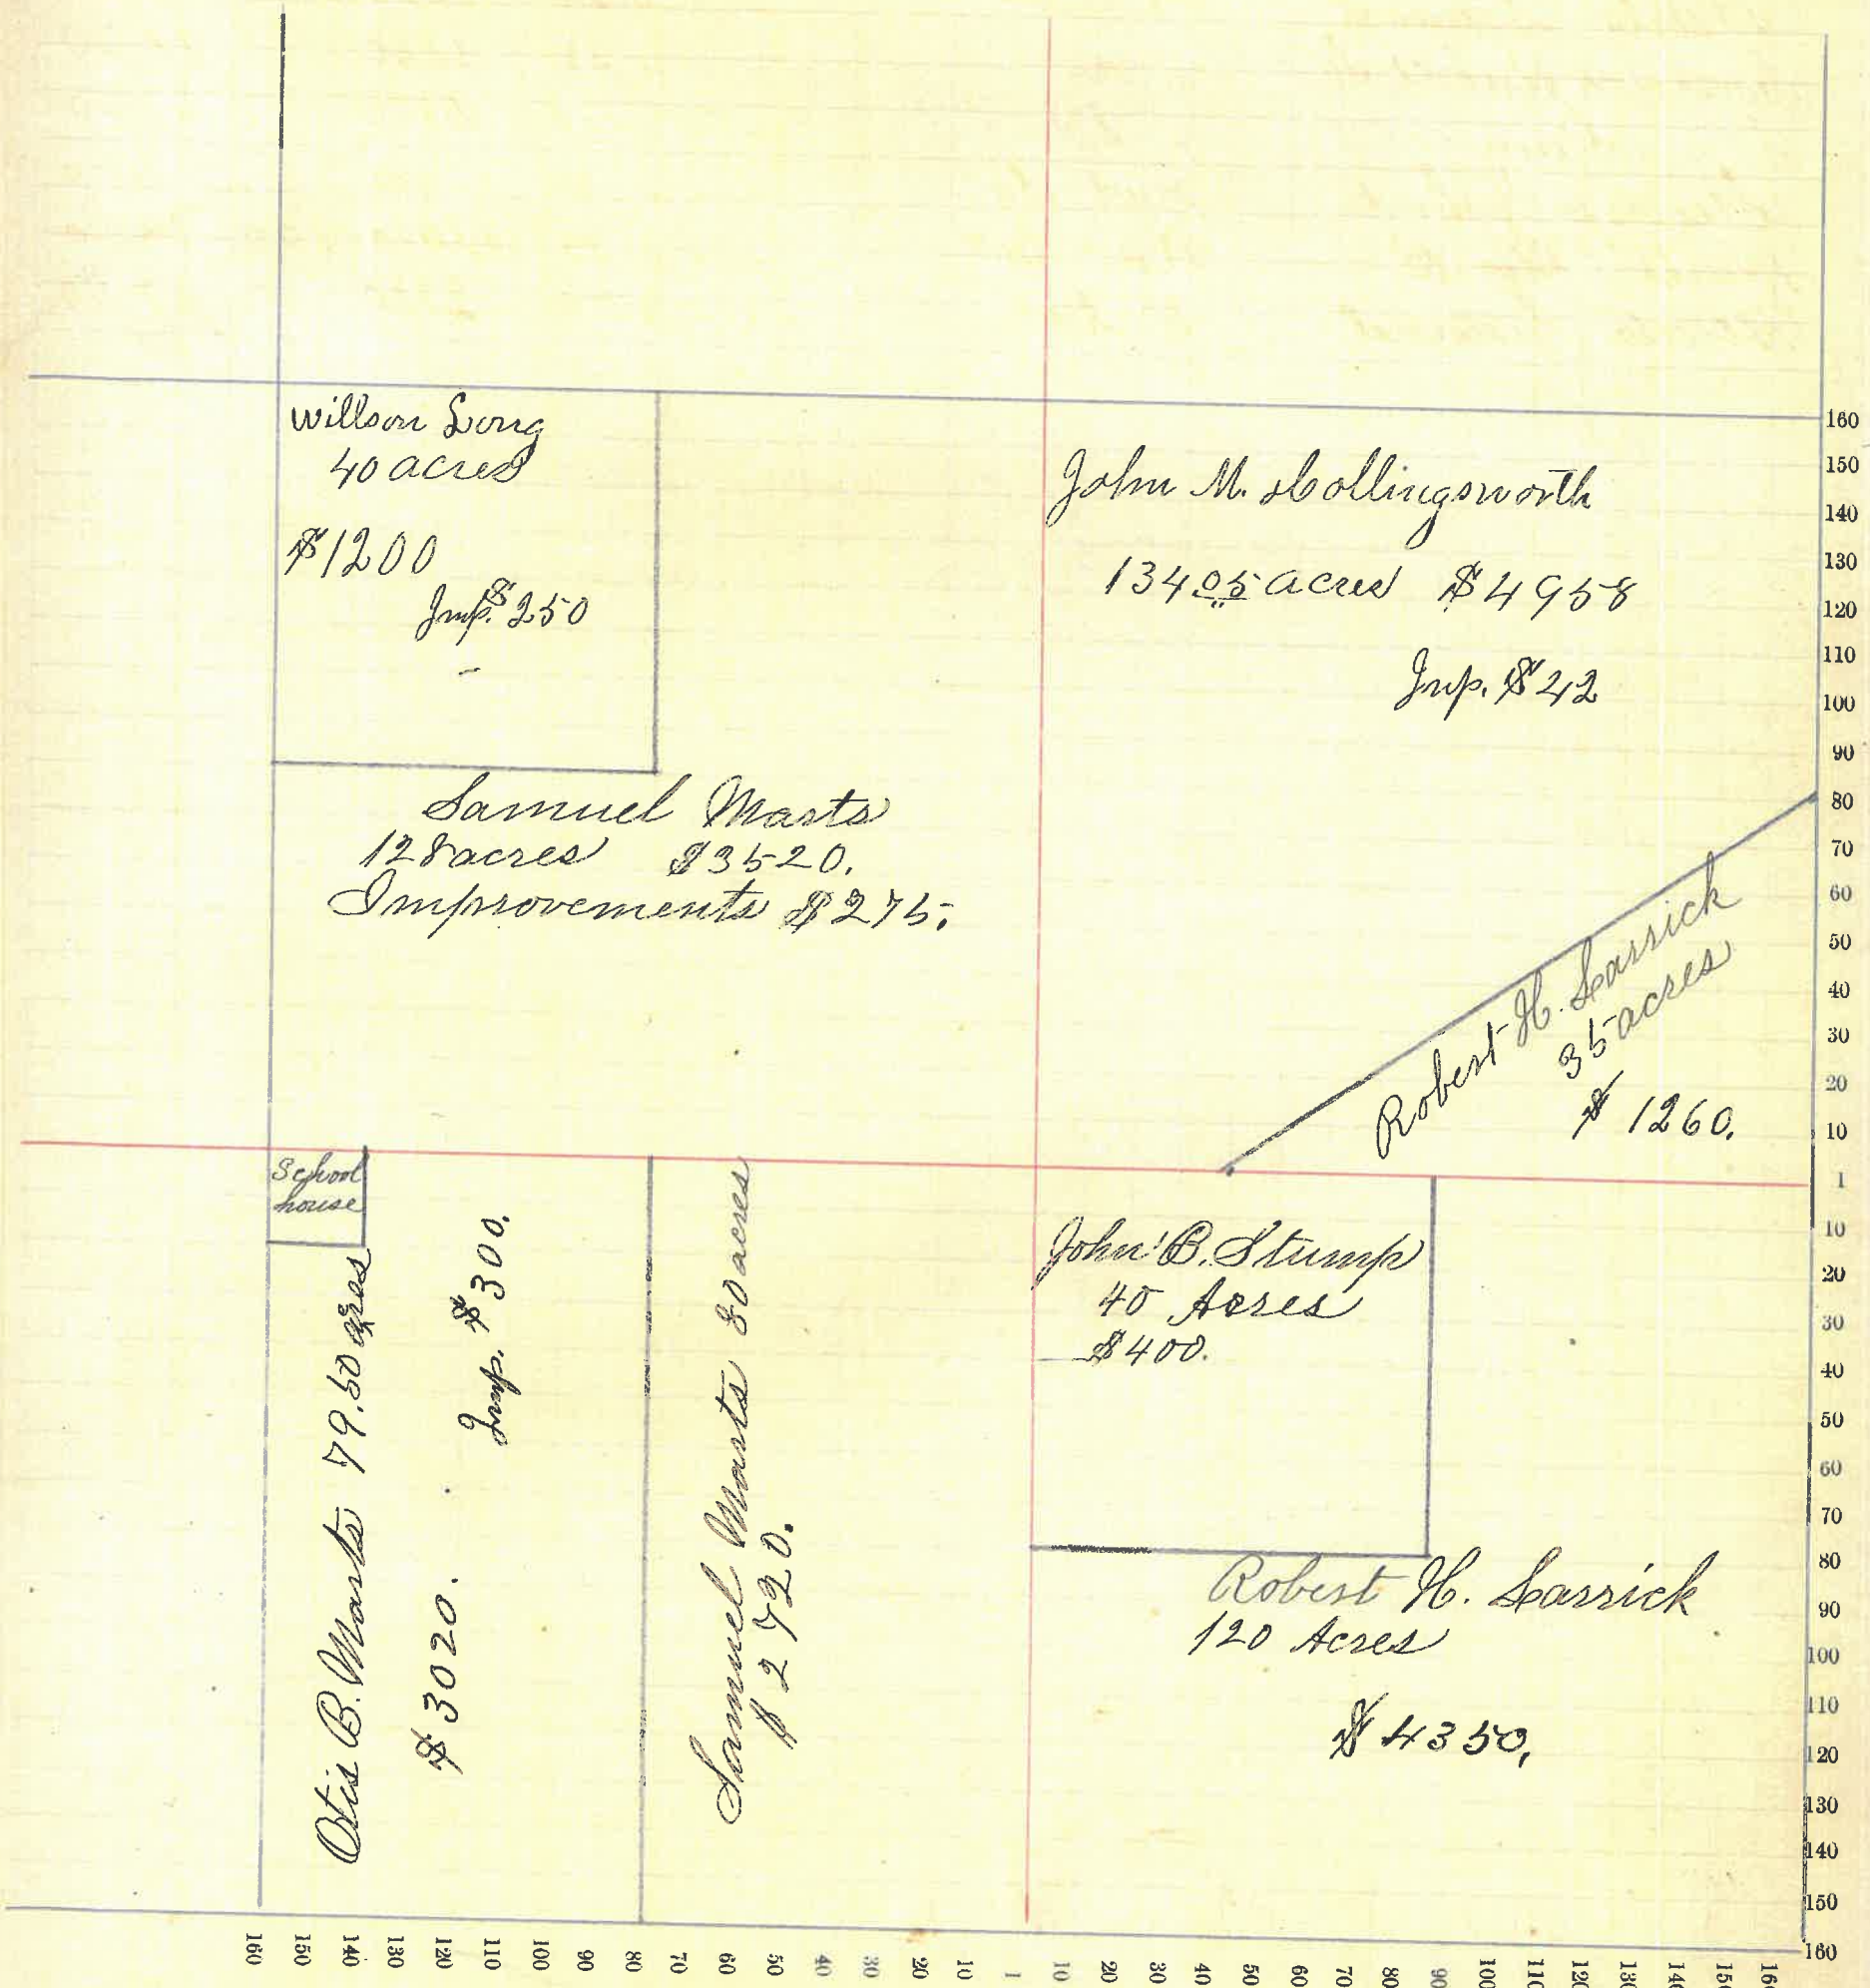 Willson Long
40 acres
$1200
Imp. $250
John M. Hollingsworth
134 05 acres $4958
Imp. $42
Samuel Marts
128 acres $3520.
Improvements $275.
Robert H. Larrick
35 acres
$1260.
School
house
Otis B. Marts 79.50 acres
$3020. Imp. $300.
Samuel Marts 80 acres
$2720.
John B. Stump
40 Acres
$400.
Robert H. Larrick
120 Acres
$4350.
160
150
140
130
120
110
100
90
80
70
60
50
40
30
20
10
1
10
20
30
40
50
60
70
80
90
100
110
120
130
140
150
160
160 150 140 130 120 110 100 90 80 70 60 50 40 30 20 10 1 10 20 30 40 50 60 70 80 90 100 110 120 130 140 150 160